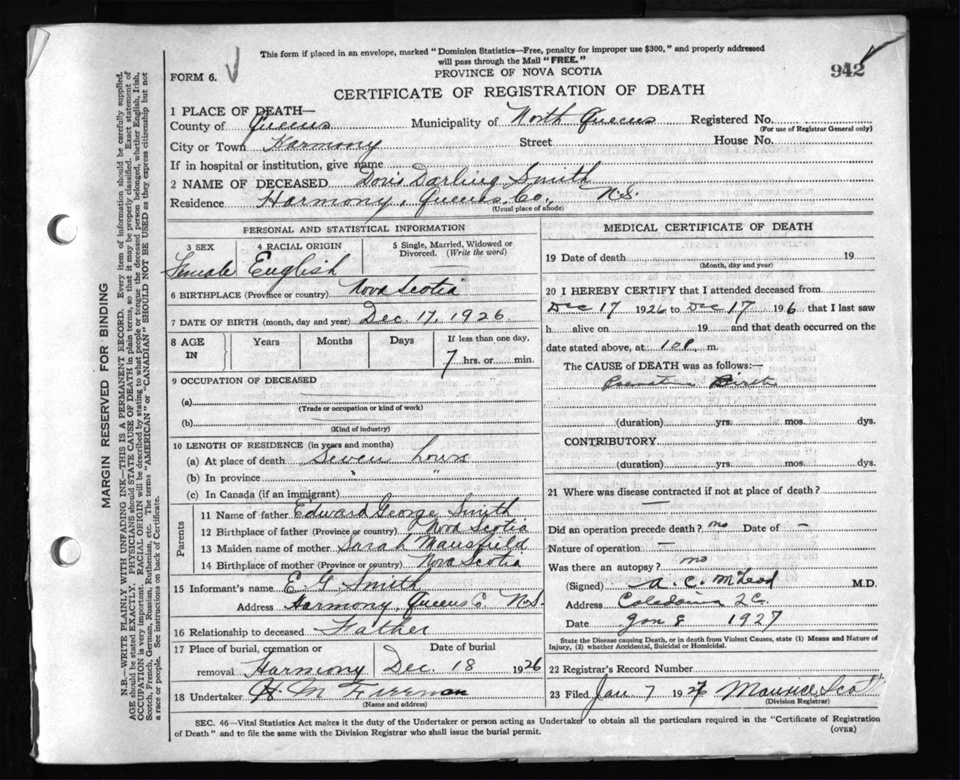 This form if placed in an envelope, marked "Dominion Statistics—Free, penalty for improper use $300," and properly addressed
will pass through the Mail "FREE."
FORM 6.
PROVINCE OF NOVA SCOTIA
942
CERTIFICATE OF REGISTRATION OF DEATH
1 PLACE OF DEATH—
County of Queens Municipality of North Queens Registered No.
(For use of Registrar General only)
City or Town Harmony Street House No.
If in hospital or institution, give name
2 NAME OF DECEASED Doris Darling Smith
Residence Harmony, Queens Co., N.S.
(Usual place of abode)
PERSONAL AND STATISTICAL INFORMATION
3 SEX 4 RACIAL ORIGIN 5 Single, Married, Widowed or
Divorced. (Write the word)
Female English
6 BIRTHPLACE (Province or country) Nova Scotia
7 DATE OF BIRTH (month, day and year) Dec. 17, 1926
8 AGE Years Months Days If less than one day,
IN 7 hrs. or min.
9 OCCUPATION OF DECEASED
(a)
(Trade or occupation or kind of work)
(b)
(Kind of industry)
10 LENGTH OF RESIDENCE (in years and months)
(a) At place of death seven hours
(b) In province " "
(c) In Canada (if an immigrant)
Parents
11 Name of father Edward George Smith
12 Birthplace of father (Province or country) Nova Scotia
13 Maiden name of mother Sarah Mansfield
14 Birthplace of mother (Province or country) Nova Scotia
15 Informant's name E G Smith
Address Harmony, Queens Co. N.S.
16 Relationship to deceased Father
17 Place of burial, cremation or Date of burial
removal Harmony Dec. 18 1926
18 Undertaker H. M. Freeman
(Name and address)
MEDICAL CERTIFICATE OF DEATH
19 Date of death 19
(Month, day and year)
20 I HEREBY CERTIFY that I attended deceased from
Dec 17 1926 to Dec 17 1926 that I last saw
h alive on 19 and that death occurred on
the date stated above, at 10 P. m.
The CAUSE of DEATH was as follows:—
Premature Birth
(duration) yrs. mos. dys.
CONTRIBUTORY
(duration) yrs. mos. dys.
21 Where was disease contracted if not at place of death?
—
Did an operation precede death? no Date of —
Nature of operation —
Was there an autopsy? no
(Signed) A. C. McLeod M.D.
Address Caledonia Q Co.
Date Jan 8 1927
State the Disease causing Death, or in death from Violent Causes, state (1) Means and Nature of
Injury, (2) whether Accidental, Suicidal or Homicidal.
22 Registrar's Record Number
23 Filed Jan. 7 1927 Maurice Scott
(Division Registrar)
SEC. 46—Vital Statistics Act makes it the duty of the Undertaker or person acting as Undertaker to obtain all the particulars required in the "Certificate of Registration
of Death" and to file the same with the Division Registrar who shall issue the burial permit.
(OVER)
MARGIN RESERVED FOR BINDING
N.B.—WRITE PLAINLY WITH UNFADING INK—THIS IS A PERMANENT RECORD. Every item of information should be carefully supplied.
AGE should be stated EXACTLY. PHYSICIANS should STATE CAUSE OF DEATH in plain terms, so that it may be properly classified. Exact statement of
OCCUPATION is very important. RACIAL ORIGIN will be described by stating to what people or tongue the deceased person belonged, whether English, Irish,
Scotch, French, German, Russian, Ruthenian, etc. The terms "AMERICAN" or "CANADIAN" SHOULD NOT BE USED as they express citizenship but not
a race or people. See instructions on back of Certificate.